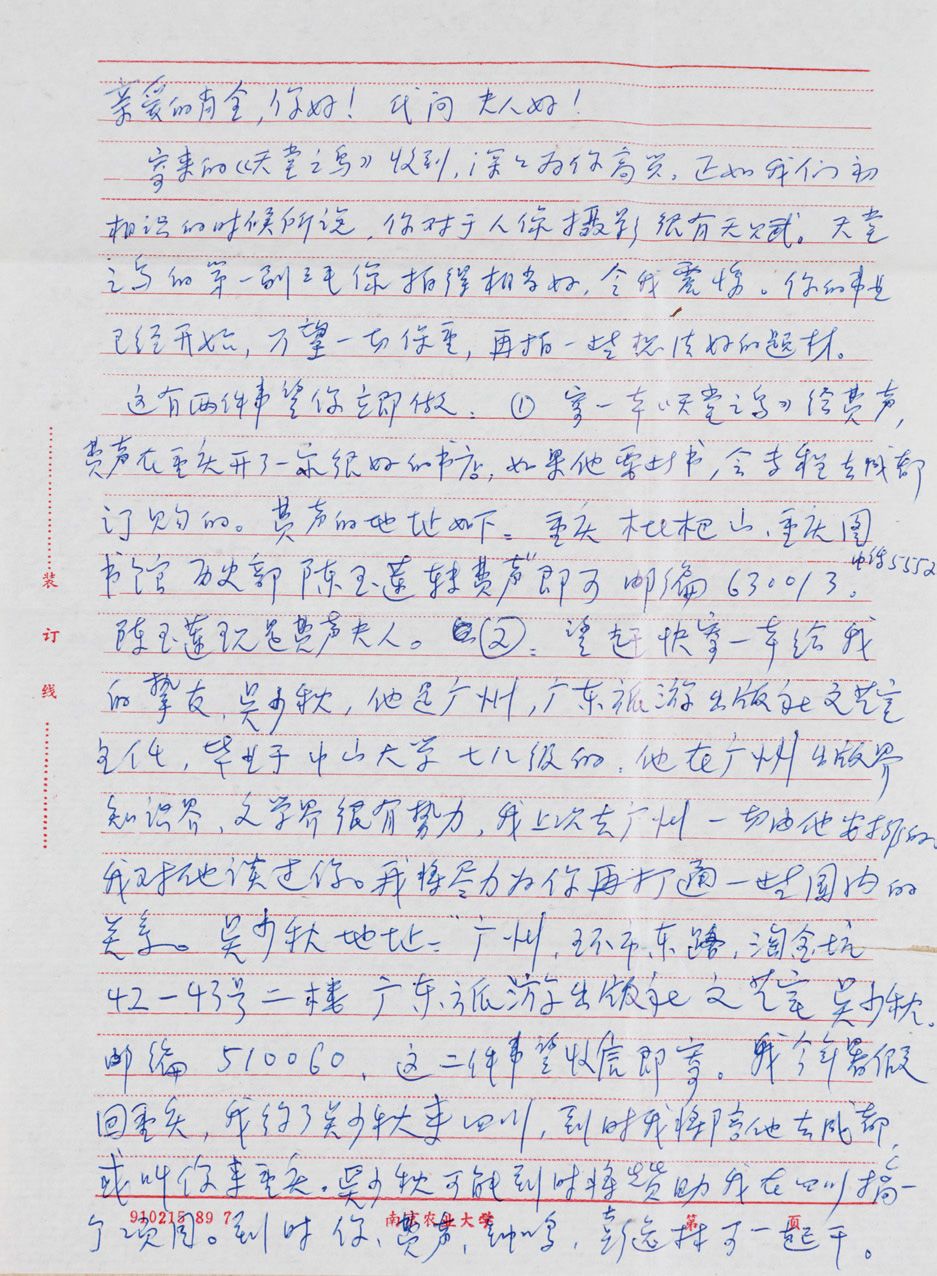 亲爱的肖全，你好！代问夫人好！
寄来的《天堂之鸟》收到，深深为你高兴，正如我们初
相识的时候所说，你对于人像摄影很有天赋。天堂
之鸟的第一副三毛像拍得相当好，令我震惊。你的事业
已经开始，万望一切保重，再拍一些想法好的题材。
这有两件事望你立即做：①寄一本《天堂之鸟》给费声，
费声在重庆开了一家很好的书店，如果他要此书，会专程去成都
订购的。费声的地址如下：重庆枇杷山·重庆图
书馆历史部陈玉莲转费声"即可 邮编630013。
陈玉莲现是费声夫人。②：望赶快寄一本给我
的挚友，吴少秋，他是广州，广东旅游出版社文艺室
主任，毕业于中山大学七八级的，他在广州出版界
知识界，文学界很有势力，我上次去广州一切由他安排的。
我对他谈过你。我将尽力为你再打通一些国内的
关系。吴少秋地址："广州，环市东路，淘金坑
42-43号二楼 广东旅游出版社文艺室 吴少秋。
邮编 510060，这二件事望收信即寄。我今年暑假
回重庆，我约了吴少秋来四川，到时我将陪他去成都，
或叫你来重庆。吴少秋可能到时将赞助我在四川搞一
个项目。到时你、费声、钟鸣、彭逸林可一起干。
装
订
线
910215 89 7
南京农业大学
第 页